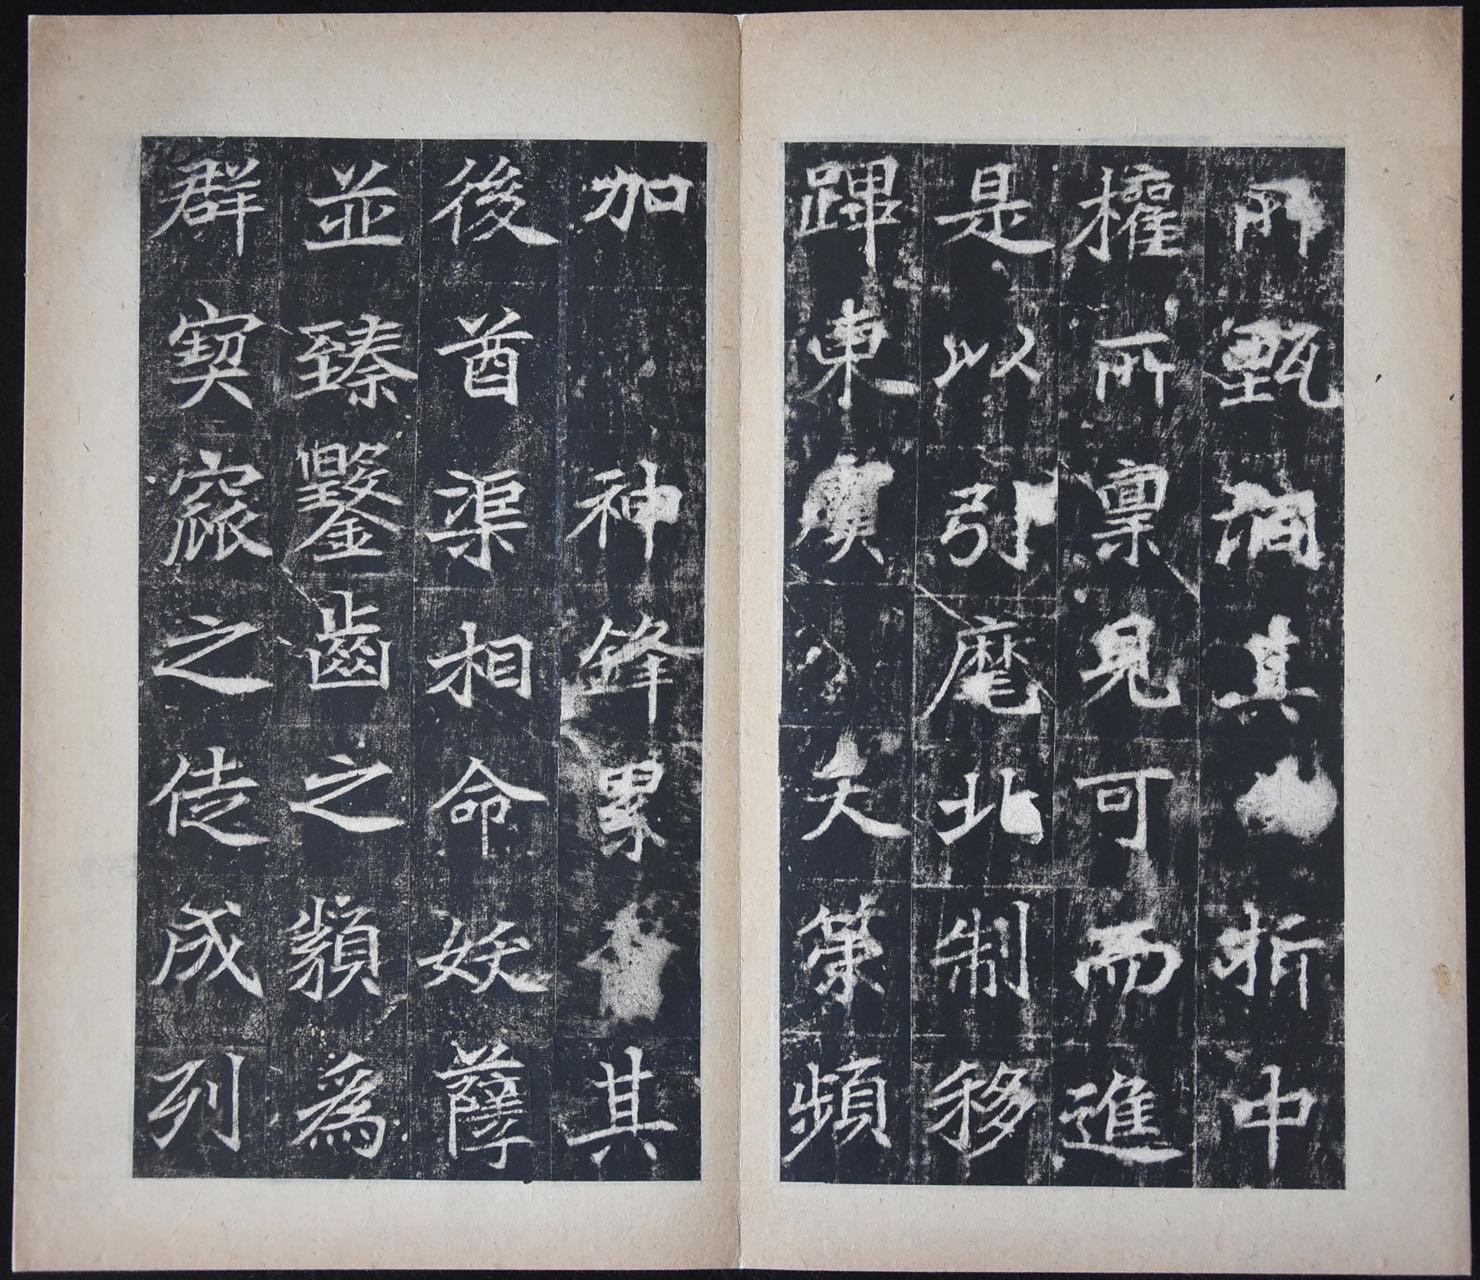 所甄洞其折中
㩲所稟見可而進
是以引麾北制移
蹕東虞天策頻
加神鋒累其
後酋渠相命妖孽
並臻鑿齒之類為
群窫窳之徒成列